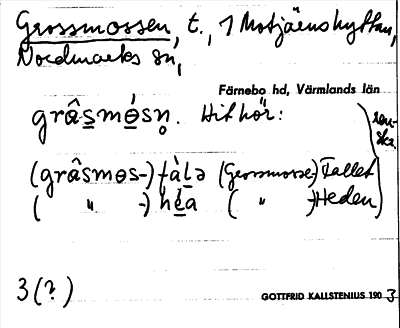 Grossmossen, t., 1 Motjärnshyttan,
Nordmarks sn,
Färnebo hd, Värmlands län
grâsmósn̥. Hithör:
(grâsmos-) tàlə (Grossmosse-) Tallet
( " -) hea ( " -) Heden
3 (?)
GOTTFRID KALLSTENIUS 1903